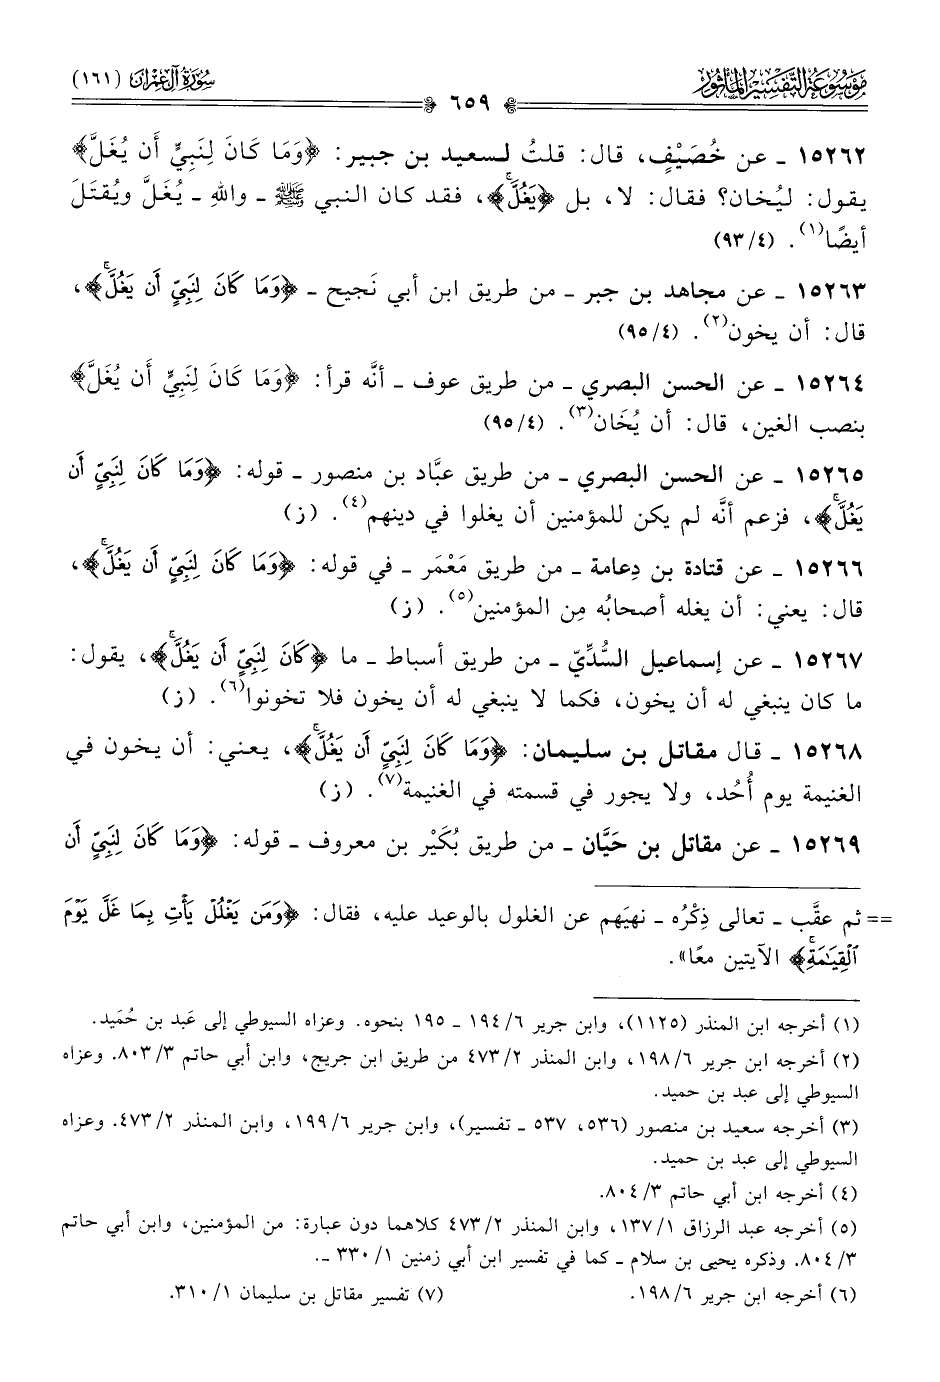 موسوعة التفسير المأثور
سورة آل عمران (١٦١)
٦٥٩
١٥٢٦٢ ـ عن خُصَيْفٍ، قال: قلتُ لسعيد بن جبير: ﴿وَمَا كَانَ لِنَبِيٍّ أَن يُغَلَّ﴾
يقول: ليُخان؟ فقال: لا، بل ﴿يَغُلَّ﴾، فقد كان النبي ﷺ ـ واللهِ ـ يُغَلَّ ويُقتَلَ
أيضًا(١). (٤/٩٣)
١٥٢٦٣ ـ عن مجاهد بن جبر ـ من طريق ابن أبي نَجيح ـ ﴿وَمَا كَانَ لِنَبِيٍّ أَن يَغُلَّۚ﴾،
قال: أن يخون(٢). (٤/٩٥)
١٥٢٦٤ ـ عن الحسن البصري ـ من طريق عوف ـ أنَّه قرأ: ﴿وَمَا كَانَ لِنَبِيٍّ أَن يُغَلَّ﴾
بنصب الغين، قال: أن يُخَان(٣). (٤/٩٥)
١٥٢٦٥ ـ عن الحسن البصري ـ من طريق عبَّاد بن منصور ـ قوله: ﴿وَمَا كَانَ لِنَبِيٍّ أَن
يَغُلَّۚ﴾، فزعم أنَّه لم يكن للمؤمنين أن يغلوا في دينهم(٤). (ز)
١٥٢٦٦ ـ عن قتادة بن دِعامة ـ من طريق مَعْمَر ـ في قوله: ﴿وَمَا كَانَ لِنَبِيٍّ أَن يَغُلَّۚ﴾،
قال: يعني: أن يغله أصحابُه مِن المؤمنين(٥). (ز)
١٥٢٦٧ ـ عن إسماعيل السُّدِّيّ ـ من طريق أسباط ـ ما ﴿كَانَ لِنَبِيٍّ أَن يَغُلَّۚ﴾، يقول:
ما كان ينبغي له أن يخون، فكما لا ينبغي له أن يخون فلا تخونوا(٦). (ز)
١٥٢٦٨ ـ قال مقاتل بن سليمان: ﴿وَمَا كَانَ لِنَبِيٍّ أَن يَغُلَّۚ﴾، يعني: أن يخون في
الغنيمة يوم أُحُد، ولا يجور في قسمته في الغنيمة(٧). (ز)
١٥٢٦٩ ـ عن مقاتل بن حَيَّان ـ من طريق بُكَيْر بن معروف ـ قوله: ﴿وَمَا كَانَ لِنَبِيٍّ أَن
== ثم عقَّب ـ تعالى ذِكْرُه ـ نهيَهم عن الغلول بالوعيد عليه، فقال: ﴿وَمَن يَغْلُلْ يَأْتِ بِمَا غَلَّ يَوْمَ
ٱلْقِيَـٰمَةِۚ﴾ الآيتين معًا».
(١) أخرجه ابن المنذر (١١٢٥)، وابن جرير ٦/١٩٤ ـ ١٩٥ بنحوه. وعزاه السيوطي إلى عَبد بن حُمَيد.
(٢) أخرجه ابن جرير ٦/١٩٨، وابن المنذر ٢/٤٧٣ من طريق ابن جريج، وابن أبي حاتم ٣/٨٠٣. وعزاه
السيوطي إلى عبد بن حميد.
(٣) أخرجه سعيد بن منصور (٥٣٦، ٥٣٧ ـ تفسير)، وابن جرير ٦/١٩٩، وابن المنذر ٢/٤٧٣. وعزاه
السيوطي إلى عبد بن حميد.
(٤) أخرجه ابن أبي حاتم ٣/٨٠٤.
(٥) أخرجه عبد الرزاق ١/١٣٧، وابن المنذر ٢/٤٧٣ كلاهما دون عبارة: من المؤمنين، وابن أبي حاتم
٣/٨٠٤. وذكره يحيى بن سلام ـ كما في تفسير ابن أبي زمنين ١/٣٣٠ ـ.
(٦) أخرجه ابن جرير ٦/١٩٨.
(٧) تفسير مقاتل بن سليمان ١/٣١٠.